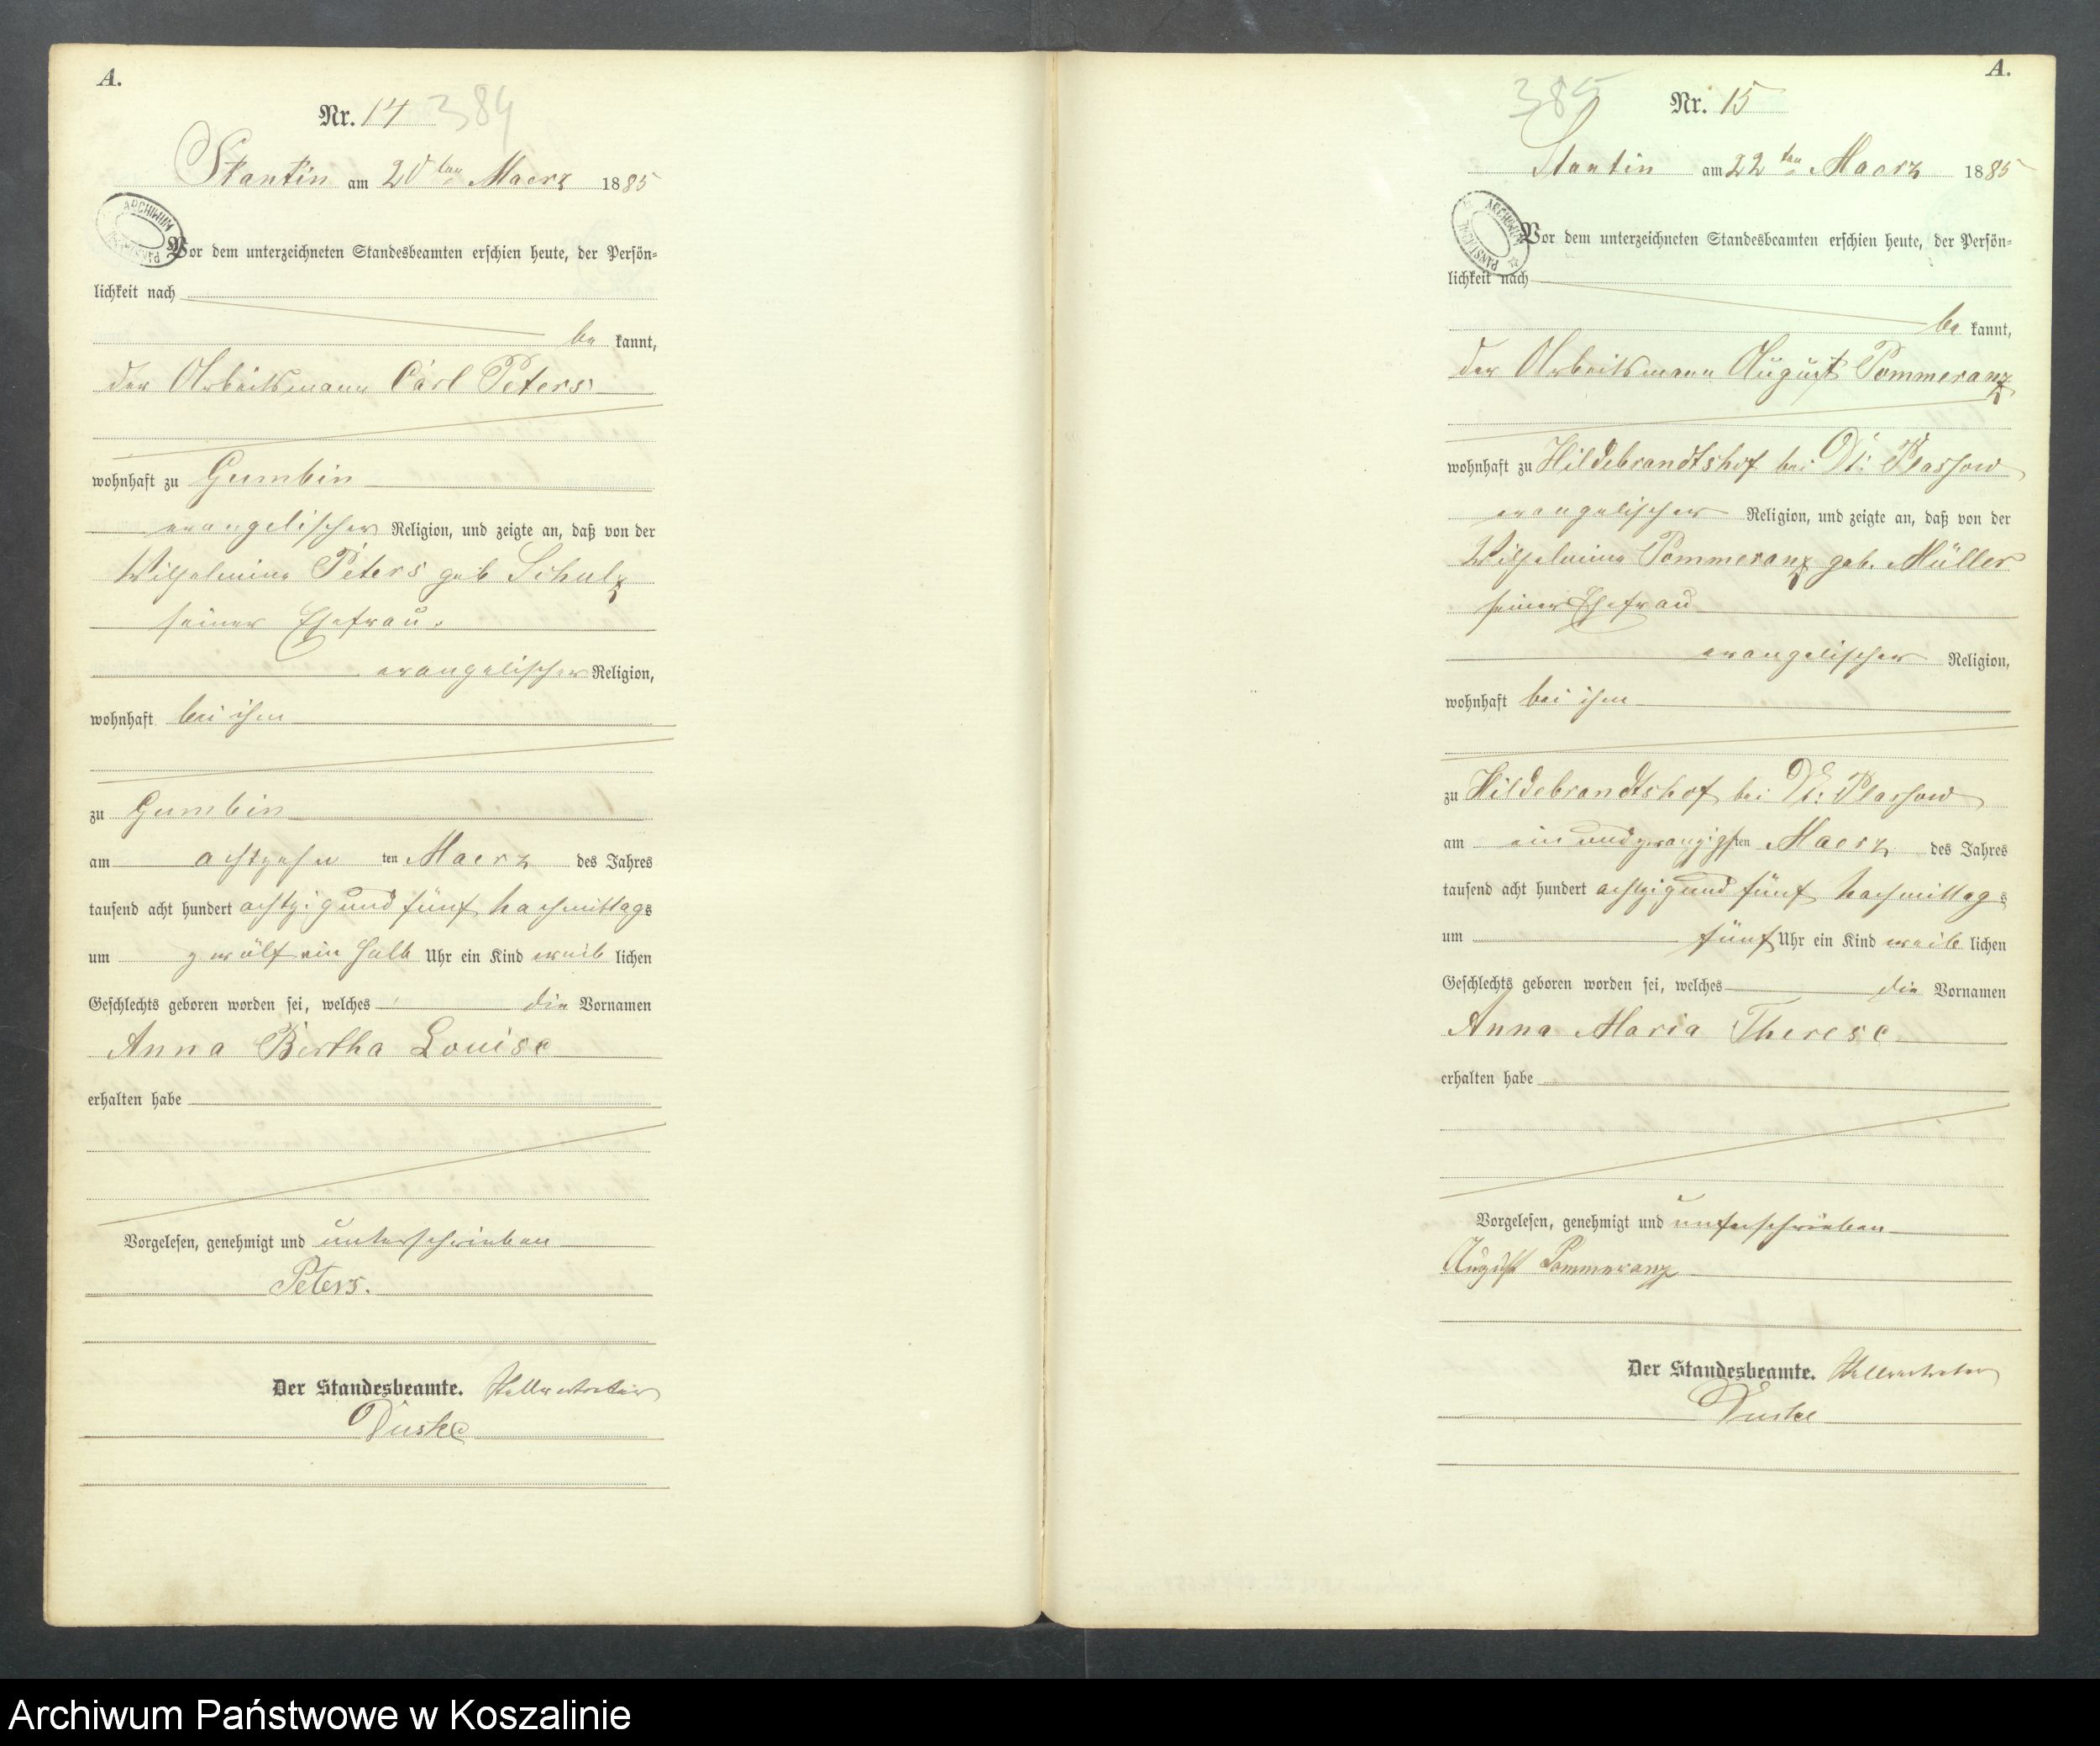 A.
Nr. 14 384
Stantin am 20ten Maerz 1885
ARCHIWUM
Vor dem unterzeichneten Standesbeamten erschien heute, der Persön-
lichkeit nach
be kannt,
der Arbeitsmann Carl Peters
wohnhaft zu Gumbin
evangelischer Religion, und zeigte an, daß von der
Wilhelmine Peters geb Schulz
seiner Ehefrau.
evangelischer Religion,
wohnhaft bei ihm
zu Gumbin
am achtzehn ten Maerz des Jahres
tausend acht hundert achtzig und fünf Nachmittags
um zwölf ein halb Uhr ein Kind weib lichen
Geschlechts geboren worden sei, welches die Vornamen
Anna Bertha Louise
erhalten habe
Vorgelesen, genehmigt und unterschrieben
Peters.
Der Standesbeamte. Stellvertreter
Duske
A.
385 Nr. 15
Stantin am 22ten Maerz 1885
ARCHIWUM PAŃSTWOWE
Vor dem unterzeichneten Standesbeamten erschien heute, der Persön-
lichkeit nach
be kannt,
der Arbeitsmann August Pommeranz
wohnhaft zu Hildebrandtshof bei Dt: Plassow
evangelischer Religion, und zeigte an, daß von der
Wilhelmine Pommeranz geb. Müller
seiner Ehefrau
evangelischer Religion,
wohnhaft bei ihm
zu Hildebrandtshof bei Dt: Plassow
am ein und zwanzigsten Maerz des Jahres
tausend acht hundert achtzig und fünf Nachmittags
um fünf Uhr ein Kind weib lichen
Geschlechts geboren worden sei, welches die Vornamen
Anna Maria Therese
erhalten habe
Vorgelesen, genehmigt und unterschrieben
August Pommeranz
Der Standesbeamte. Stellvertreter
Duske
Archiwum Państwowe w Koszalinie